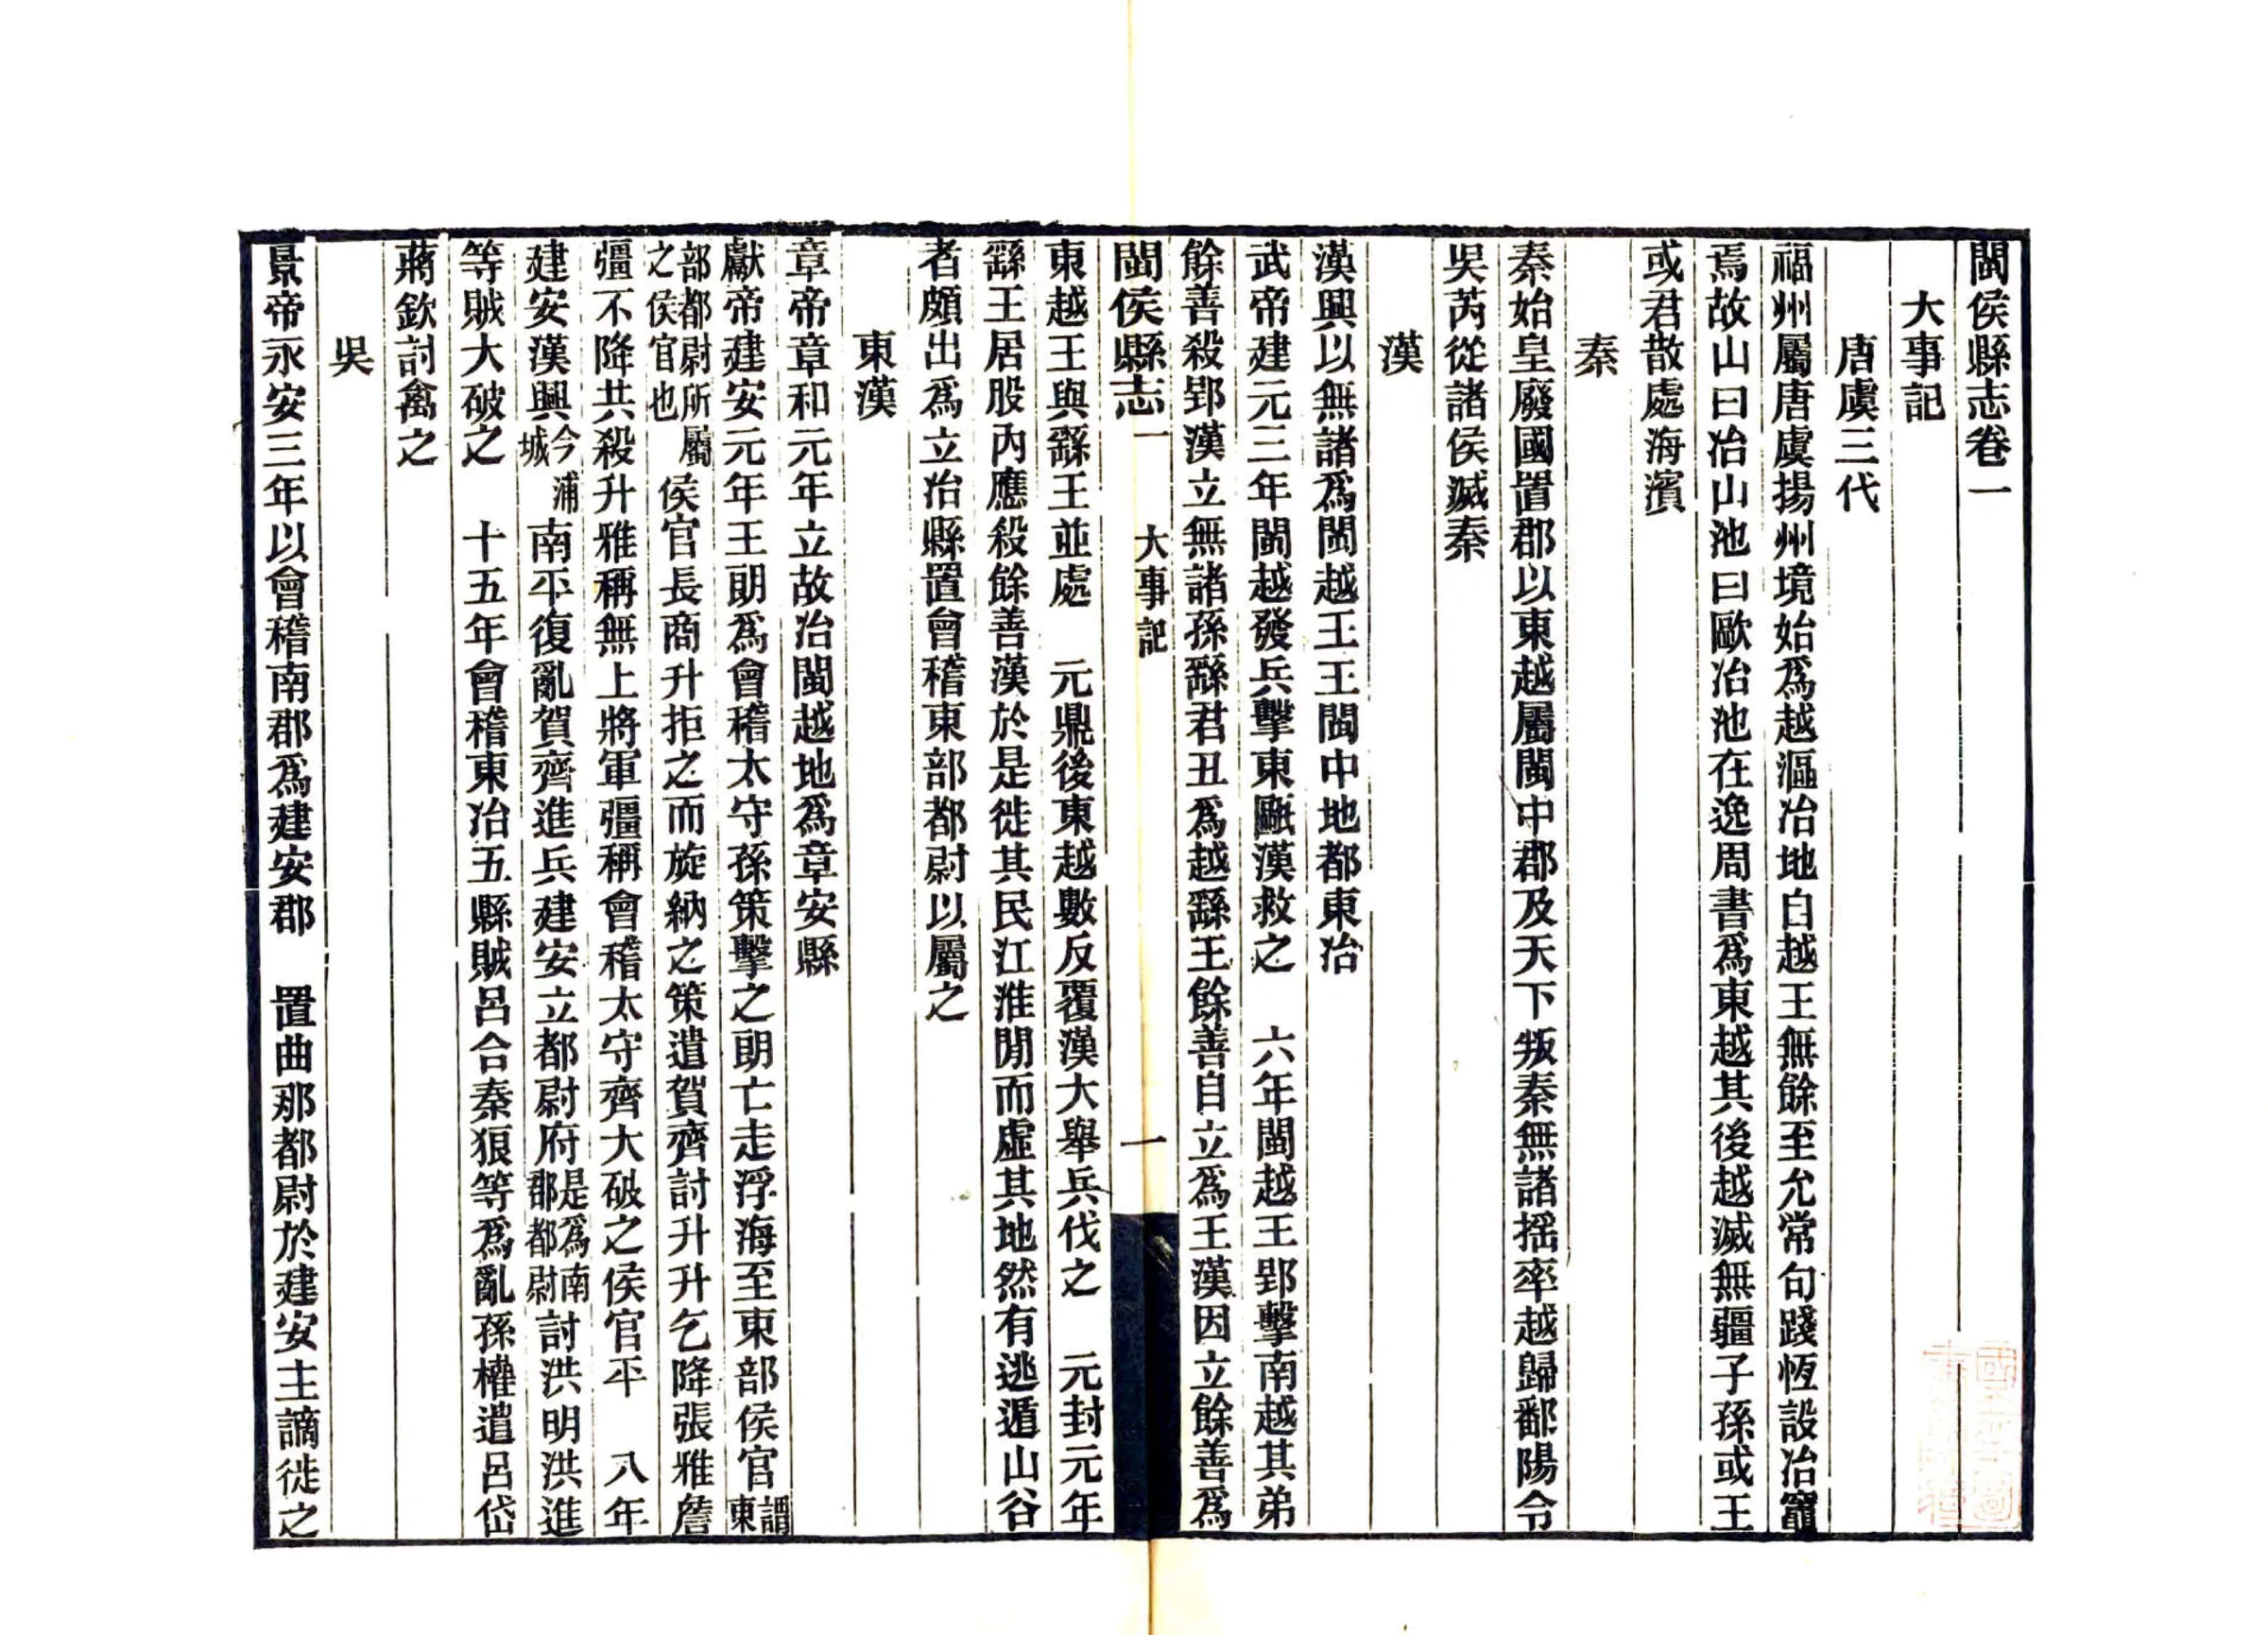 閩侯縣志卷一
大事記
唐虞三代
福州屬唐虞揚州境始爲越漚冶地自越王無餘至允常句踐恆設冶竈
焉故山曰冶山池曰歐冶池在逸周書爲東越其後越滅無疆子孫或王
或君散處海濱
秦
秦始皇廢國置郡以東越屬閩中郡及天下叛秦無諸搖率越歸鄱陽令
吳芮從諸侯滅秦
漢
漢興以無諸爲閩越王王閩中地都東冶
武帝建元三年閩越發兵擊東甌漢救之　六年閩越王郢擊南越其弟
餘善殺郢漢立無諸孫繇君丑爲越繇王餘善自立爲王漢因立餘善爲
閩侯縣志一　大事記　一
東越王與繇王並處　元鼎後東越數反覆漢大舉兵伐之　元封元年
繇王居股內應殺餘善漢於是徙其民江淮閒而虛其地然有逃遁山谷
者頗出爲立冶縣置會稽東部都尉以屬之
東漢
章帝章和元年立故冶閩越地爲章安縣
獻帝建安元年王朗爲會稽太守孫策擊之朗亡走浮海至東部侯官謂東
部都尉所屬之侯官也侯官長商升拒之而旋納之策遣賀齊討升升乞降張雅詹
彊不降共殺升雅稱無上將軍彊稱會稽太守齊大破之侯官平　八年
建安漢興今浦城南平復亂賀齊進兵建安立都尉府是爲南郡都尉討洪明洪進
等賊大破之　十五年會稽東冶五縣賊呂合秦狼等爲亂孫權遣呂岱
蔣欽討禽之
吳
景帝永安三年以會稽南郡爲建安郡　置曲那都尉於建安主謫徙之